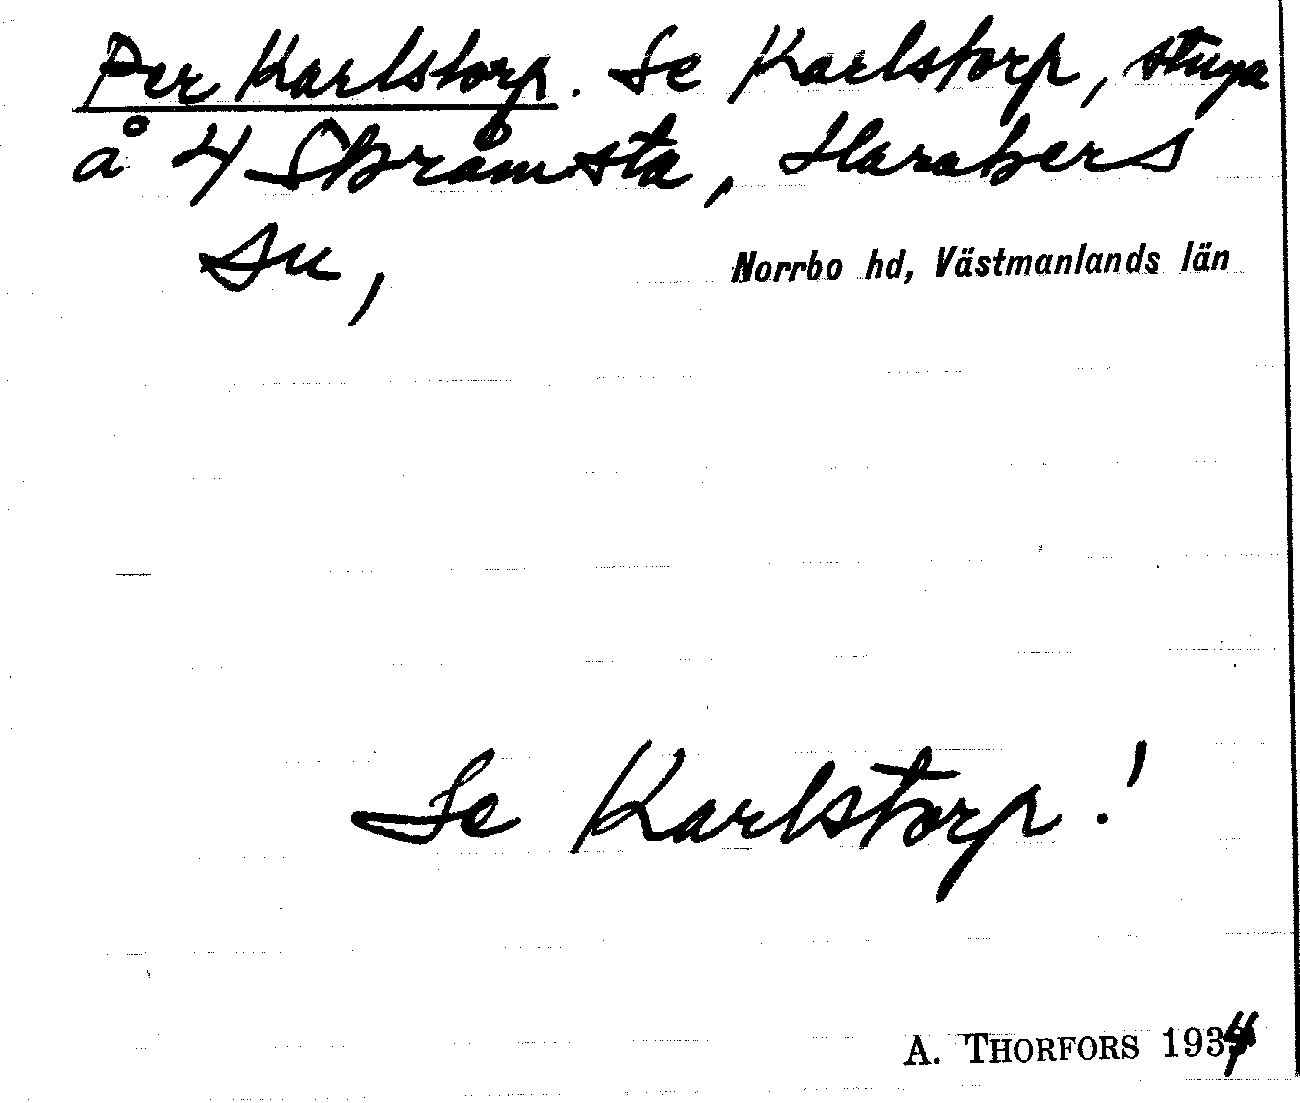 Per Karlstorp. Se Karlstorp, stuga
å 4 Skråmsta, Harakers
sn,
Norrbo hd, Västmanlands län
Se Karlstorp!
A. THORFORS 1934